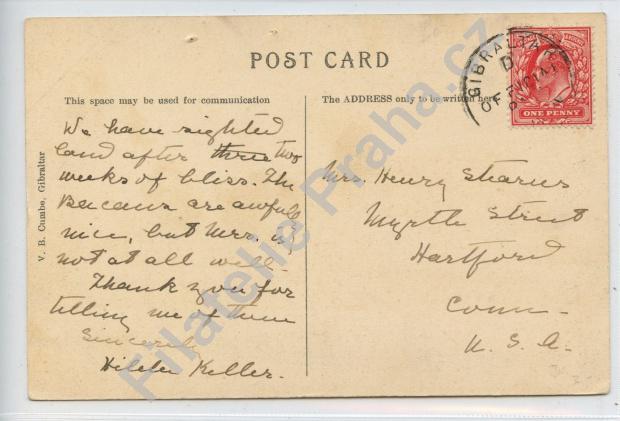 POST CARD
This space may be used for communication
The ADDRESS only to be written here
V. B. Cumbo, Gibraltar
We have sighted
land after three two
weeks of bliss. The
are awfully
nice, but Mrs. is
not at all well.
Thank you for
telling me of them
Sincerely
Keller.
Mrs. Henry Stearns
Myrtle Street
Hartford
Conn.
U. S. A.
GIBRALTAR
D
ONE PENNY
Filatelie Praha.cz